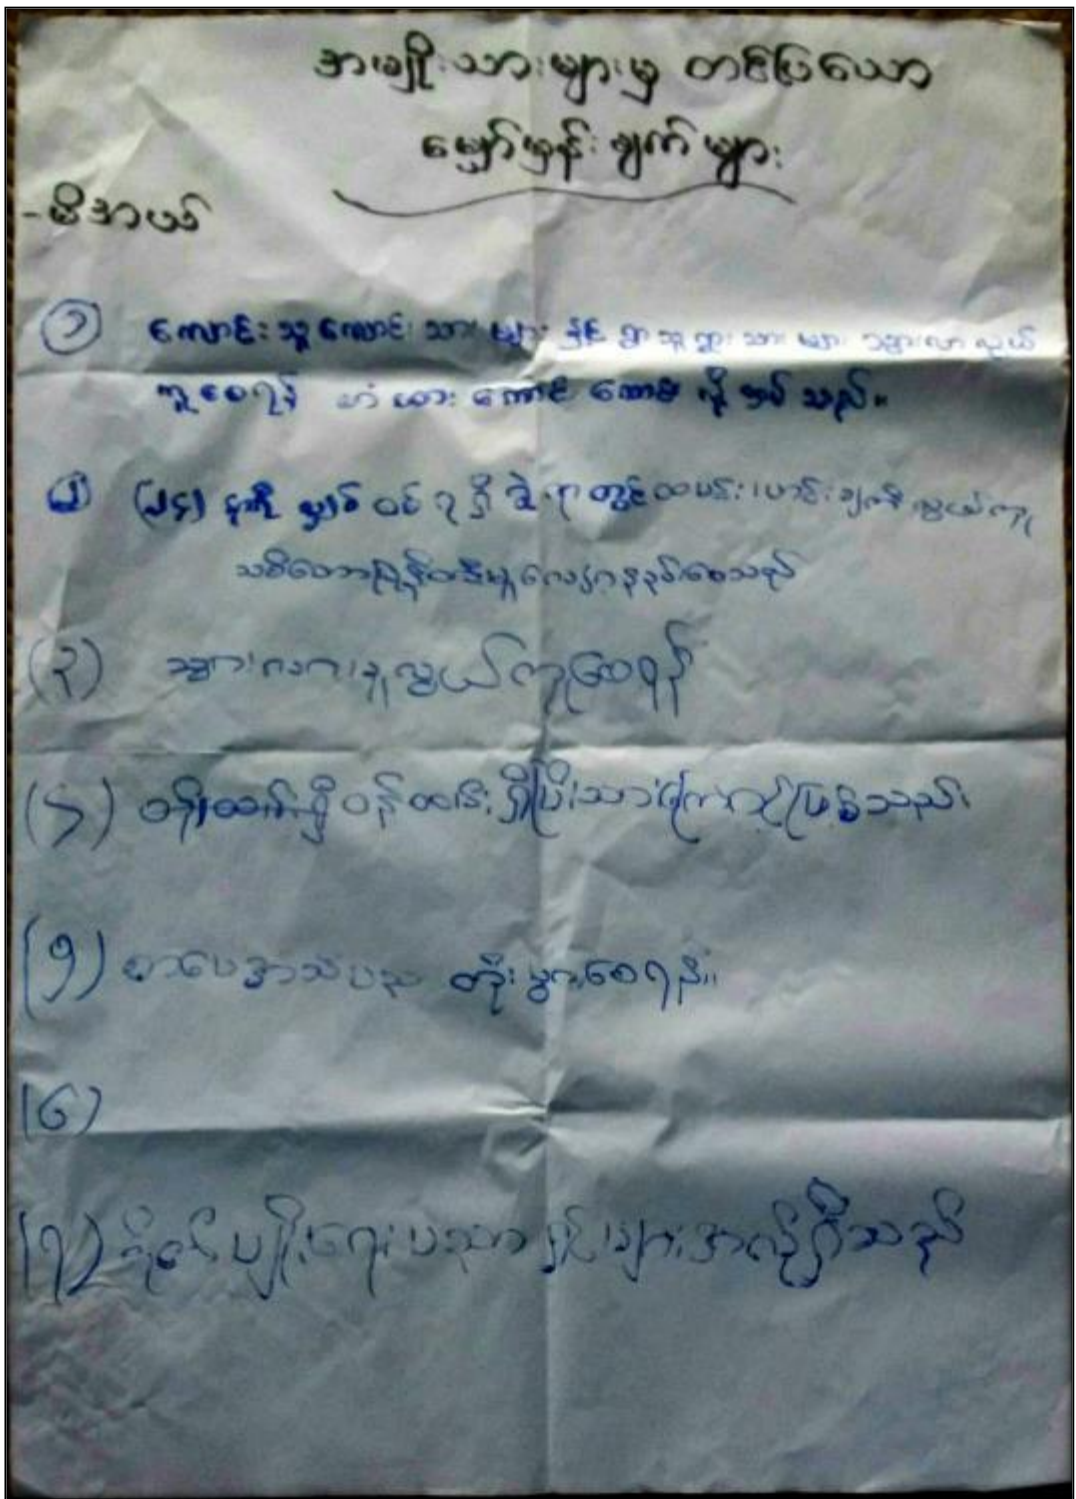 အမျိုးသားများမှ တင်ပြသော
မျှော်မှန်းချက်များ
-မိအယ်
၁ ကျောင်းသူကျောင်းသားများ နှင့် ရွာသူရွာသားများ သွားလာလွယ်
ကူစေရန် တံတား ကောင်းကောင်း လိုအပ်သည်။
၂ (၂၄) နာရီ လျှပ်စစ် ရရှိ တွင် ထမင်း၊ ဟင်းချက် လွယ်ကူ
သစ်တောပြုန်းတီးမှုလျော့နည်းစေသည်
(၃) သွားလာမှုလွယ်ကူစေရန်
(၄) ဝန်ထမ်း ဖြစ်သည်၊
(၅) စာပေအသိပညာ တိုးပွားစေရန်။
(၆)
(၇) စိုက်ပျိုးရေးပညာရှင်များအလိုရှိသည်